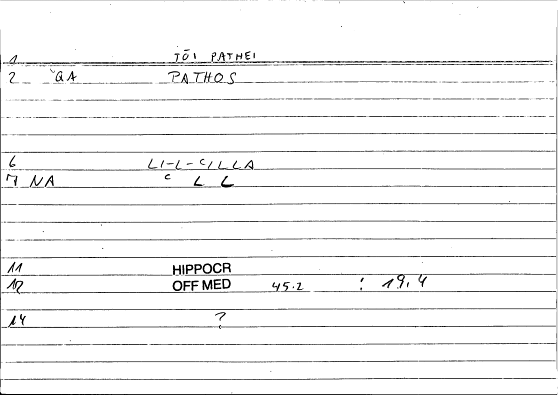 1 TŌI PATHEI
2 ʿQA PATHOS
6 LI-L-CILLA
7 NA C L L
11 HIPPOCR
12 OFF MED 45.2 : 19,4
14 ?